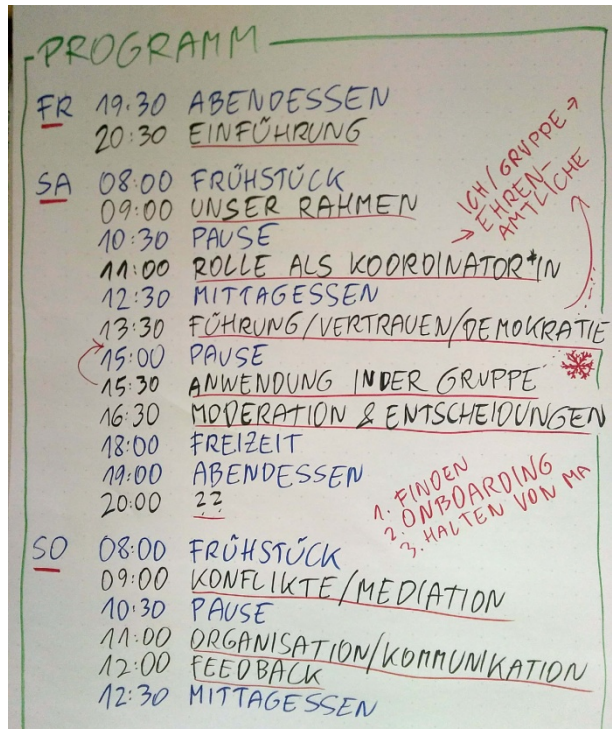 PROGRAMM
FR 19:30 ABENDESSEN
20:30 EINFÜHRUNG
SA 08:00 FRÜHSTÜCK
09:00 UNSER RAHMEN
10:30 PAUSE
11:00 ROLLE ALS KOORDINATOR*IN
12:30 MITTAGESSEN
13:30 FÜHRUNG/VERTRAUEN/DEMOKRATIE
15:00 PAUSE
15:30 ANWENDUNG IN DER GRUPPE
16:30 MODERATION & ENTSCHEIDUNGEN
18:00 FREIZEIT
19:00 ABENDESSEN
20:00 ??
ICH/GRUPPE →
→ EHREN-
AMTLICHE
1. FINDEN
2. ONBOARDING
3. HALTEN VON MA
SO 08:00 FRÜHSTÜCK
09:00 KONFLIKTE/MEDIATION
10:30 PAUSE
11:00 ORGANISATION/KOMMUNIKATION
12:00 FEEDBACK
12:30 MITTAGESSEN